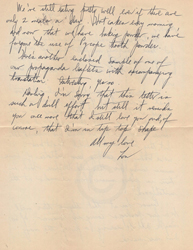 We're still eating pretty well even if there are
only 2 meals a day. Hot cakes every morning
and now that we have baking powder, we have
forgone the use of Pycope tooth powder.
Here's another enclosed sample of one of
our propaganda leaflets with accompanying
translation. Interesting, guess
Darling, I'm sorry that this letter is
such a dull effort, but still it sends
you the news that I still love you and of
course, that I'm in tip top shape
All my love